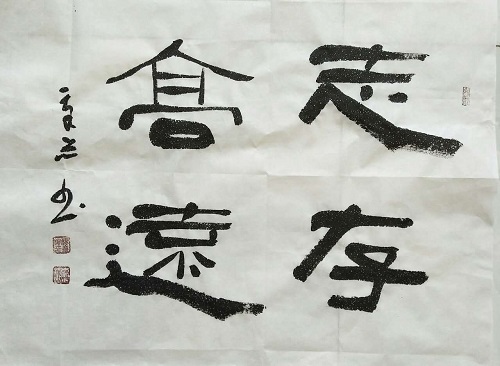 志存
高遠
書